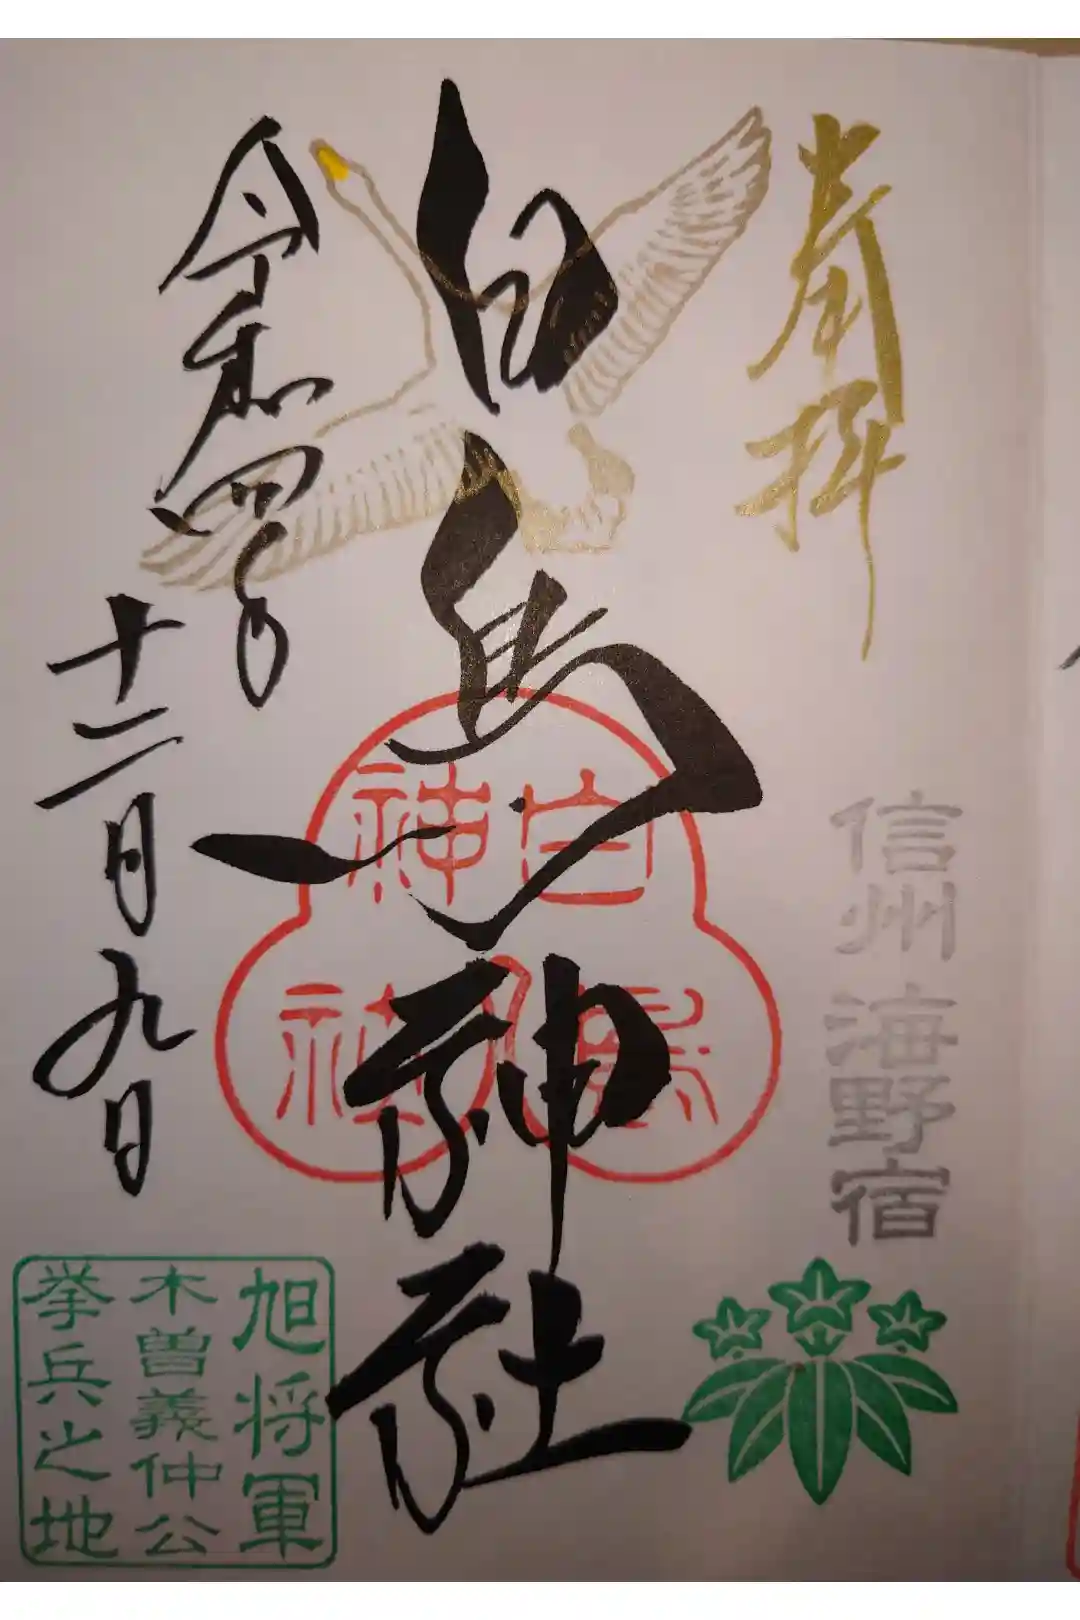 奉拝
信州 海野宿
白鳥神社
白鳥
神社
令和四年
十二月九日
旭将軍
木曽義仲公
挙兵之地